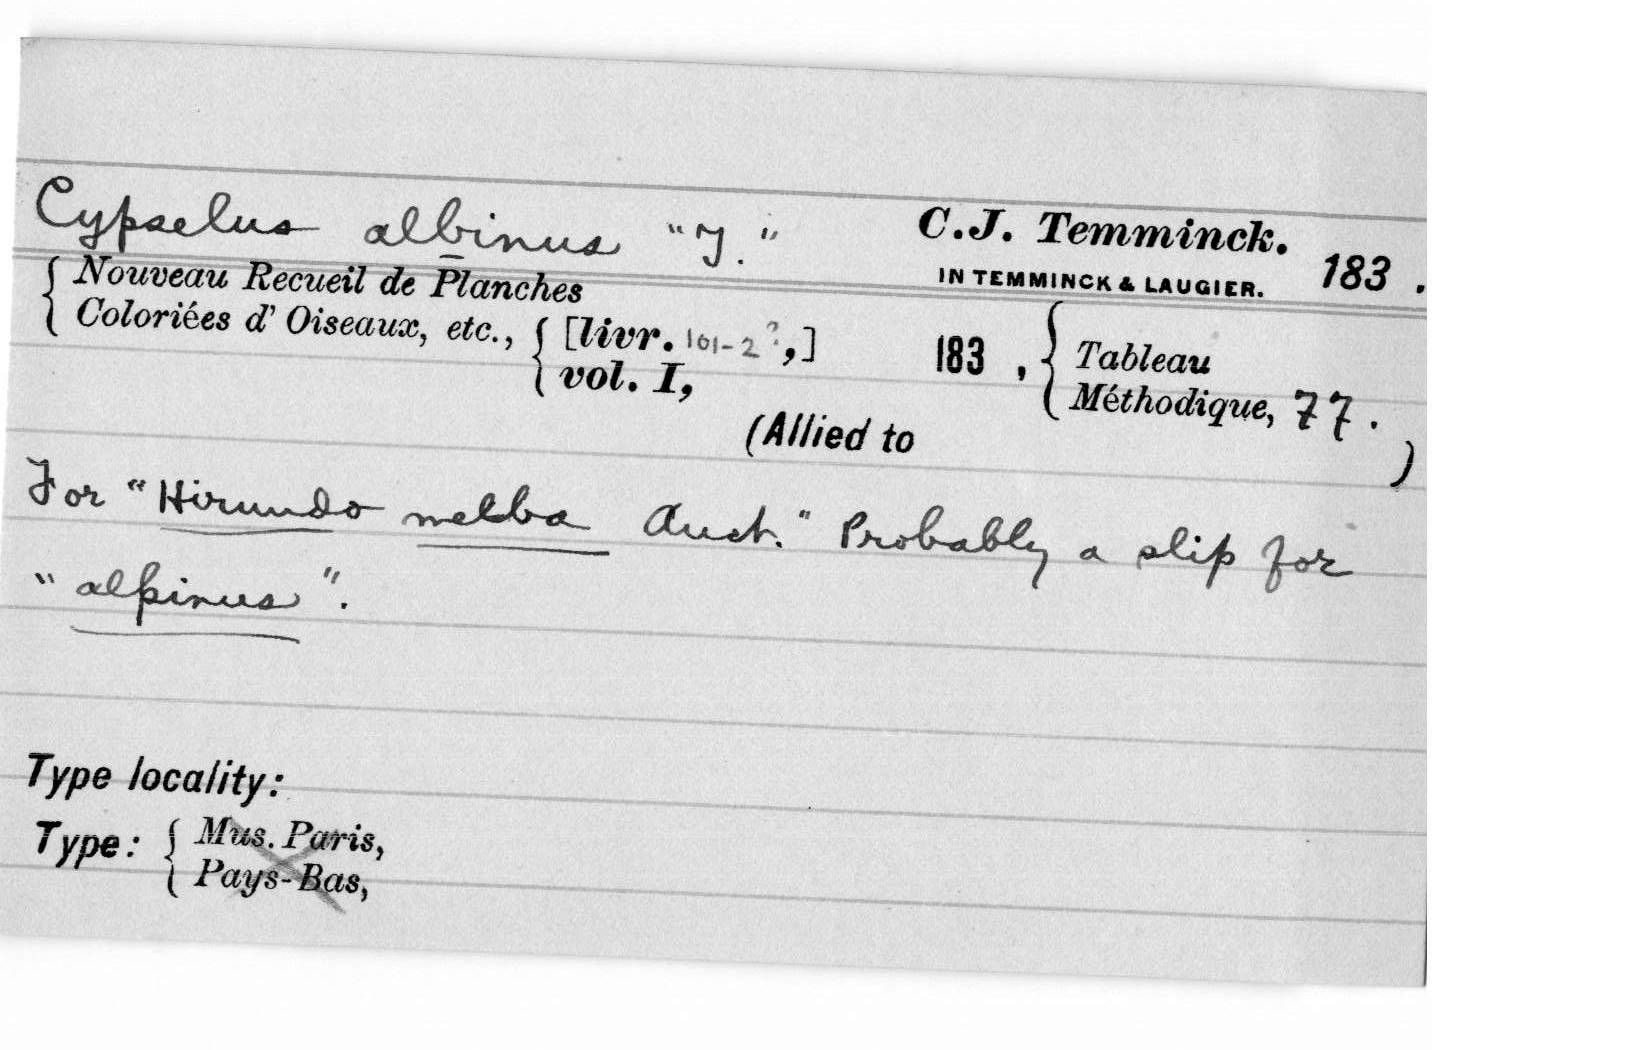 Cypselus albinus "T."
C.J. Temminck.
IN TEMMINCK & LAUGIER. 183 .
Nouveau Recueil de Planches
Coloriées d' Oiseaux, etc., [livr. 101-2?,] 183 , Tableau
vol. I, Méthodique, 77.
(Allied to )
For "Hirundo melba Auct." Probably a slip for
"alpinus".
Type locality:
Type: Mus. Paris,
Pays-Bas,